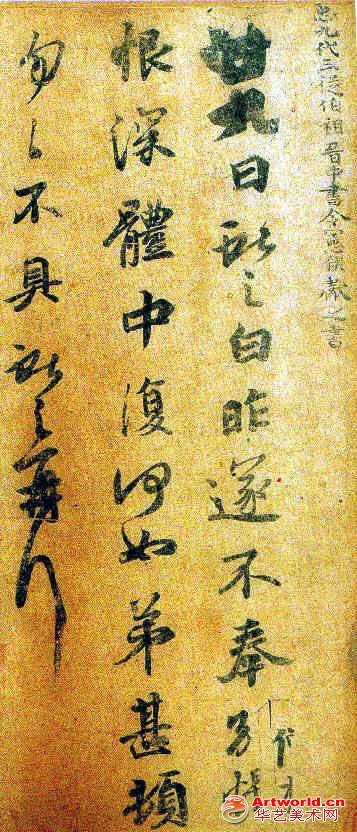 臣九代三從伯祖晉中書令憲侯獻之書
廿九日獻之白昨遂不奉別悵
恨深體中復何如弟甚頓
匆匆不具獻之再拜
Artworld.cn
华艺美术网